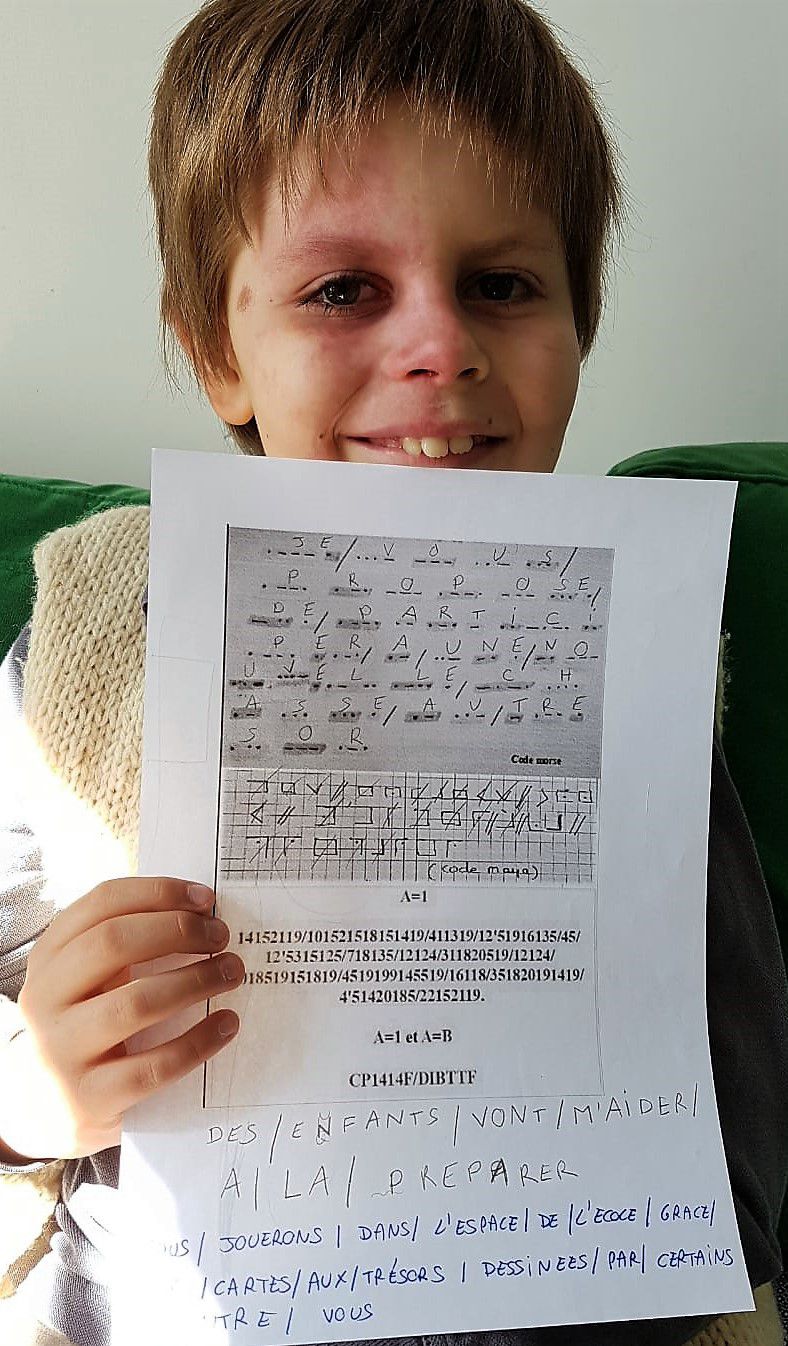 J E / V O U S /
P R O P O S E /
D E / P A R T i C i
P E R / A / U N E / N O
U V E L L E / C H
A S S E / A U / T R E
S O R
Code morse
(code maya)
A=1
14152119/101521518151419/411319/12'51916135/45/
12'5315125/718135/12124/311820519/12124/
018519151819/4519199145519/16118/351820191419/
4'51420185/22152119.
A=1 et A=B
CP1414F/DIBTTF
DES / ENFANTS / VONT / M'AiDER /
A / LA / PREPARER
US / JOUERONS / DANS / L'ESPACE / DE / L'ECOLE / GRACE /
/ CARTES / AUX / TRÉSORS / DESSINEES / PAR / CERTAINS
TRE / VOUS